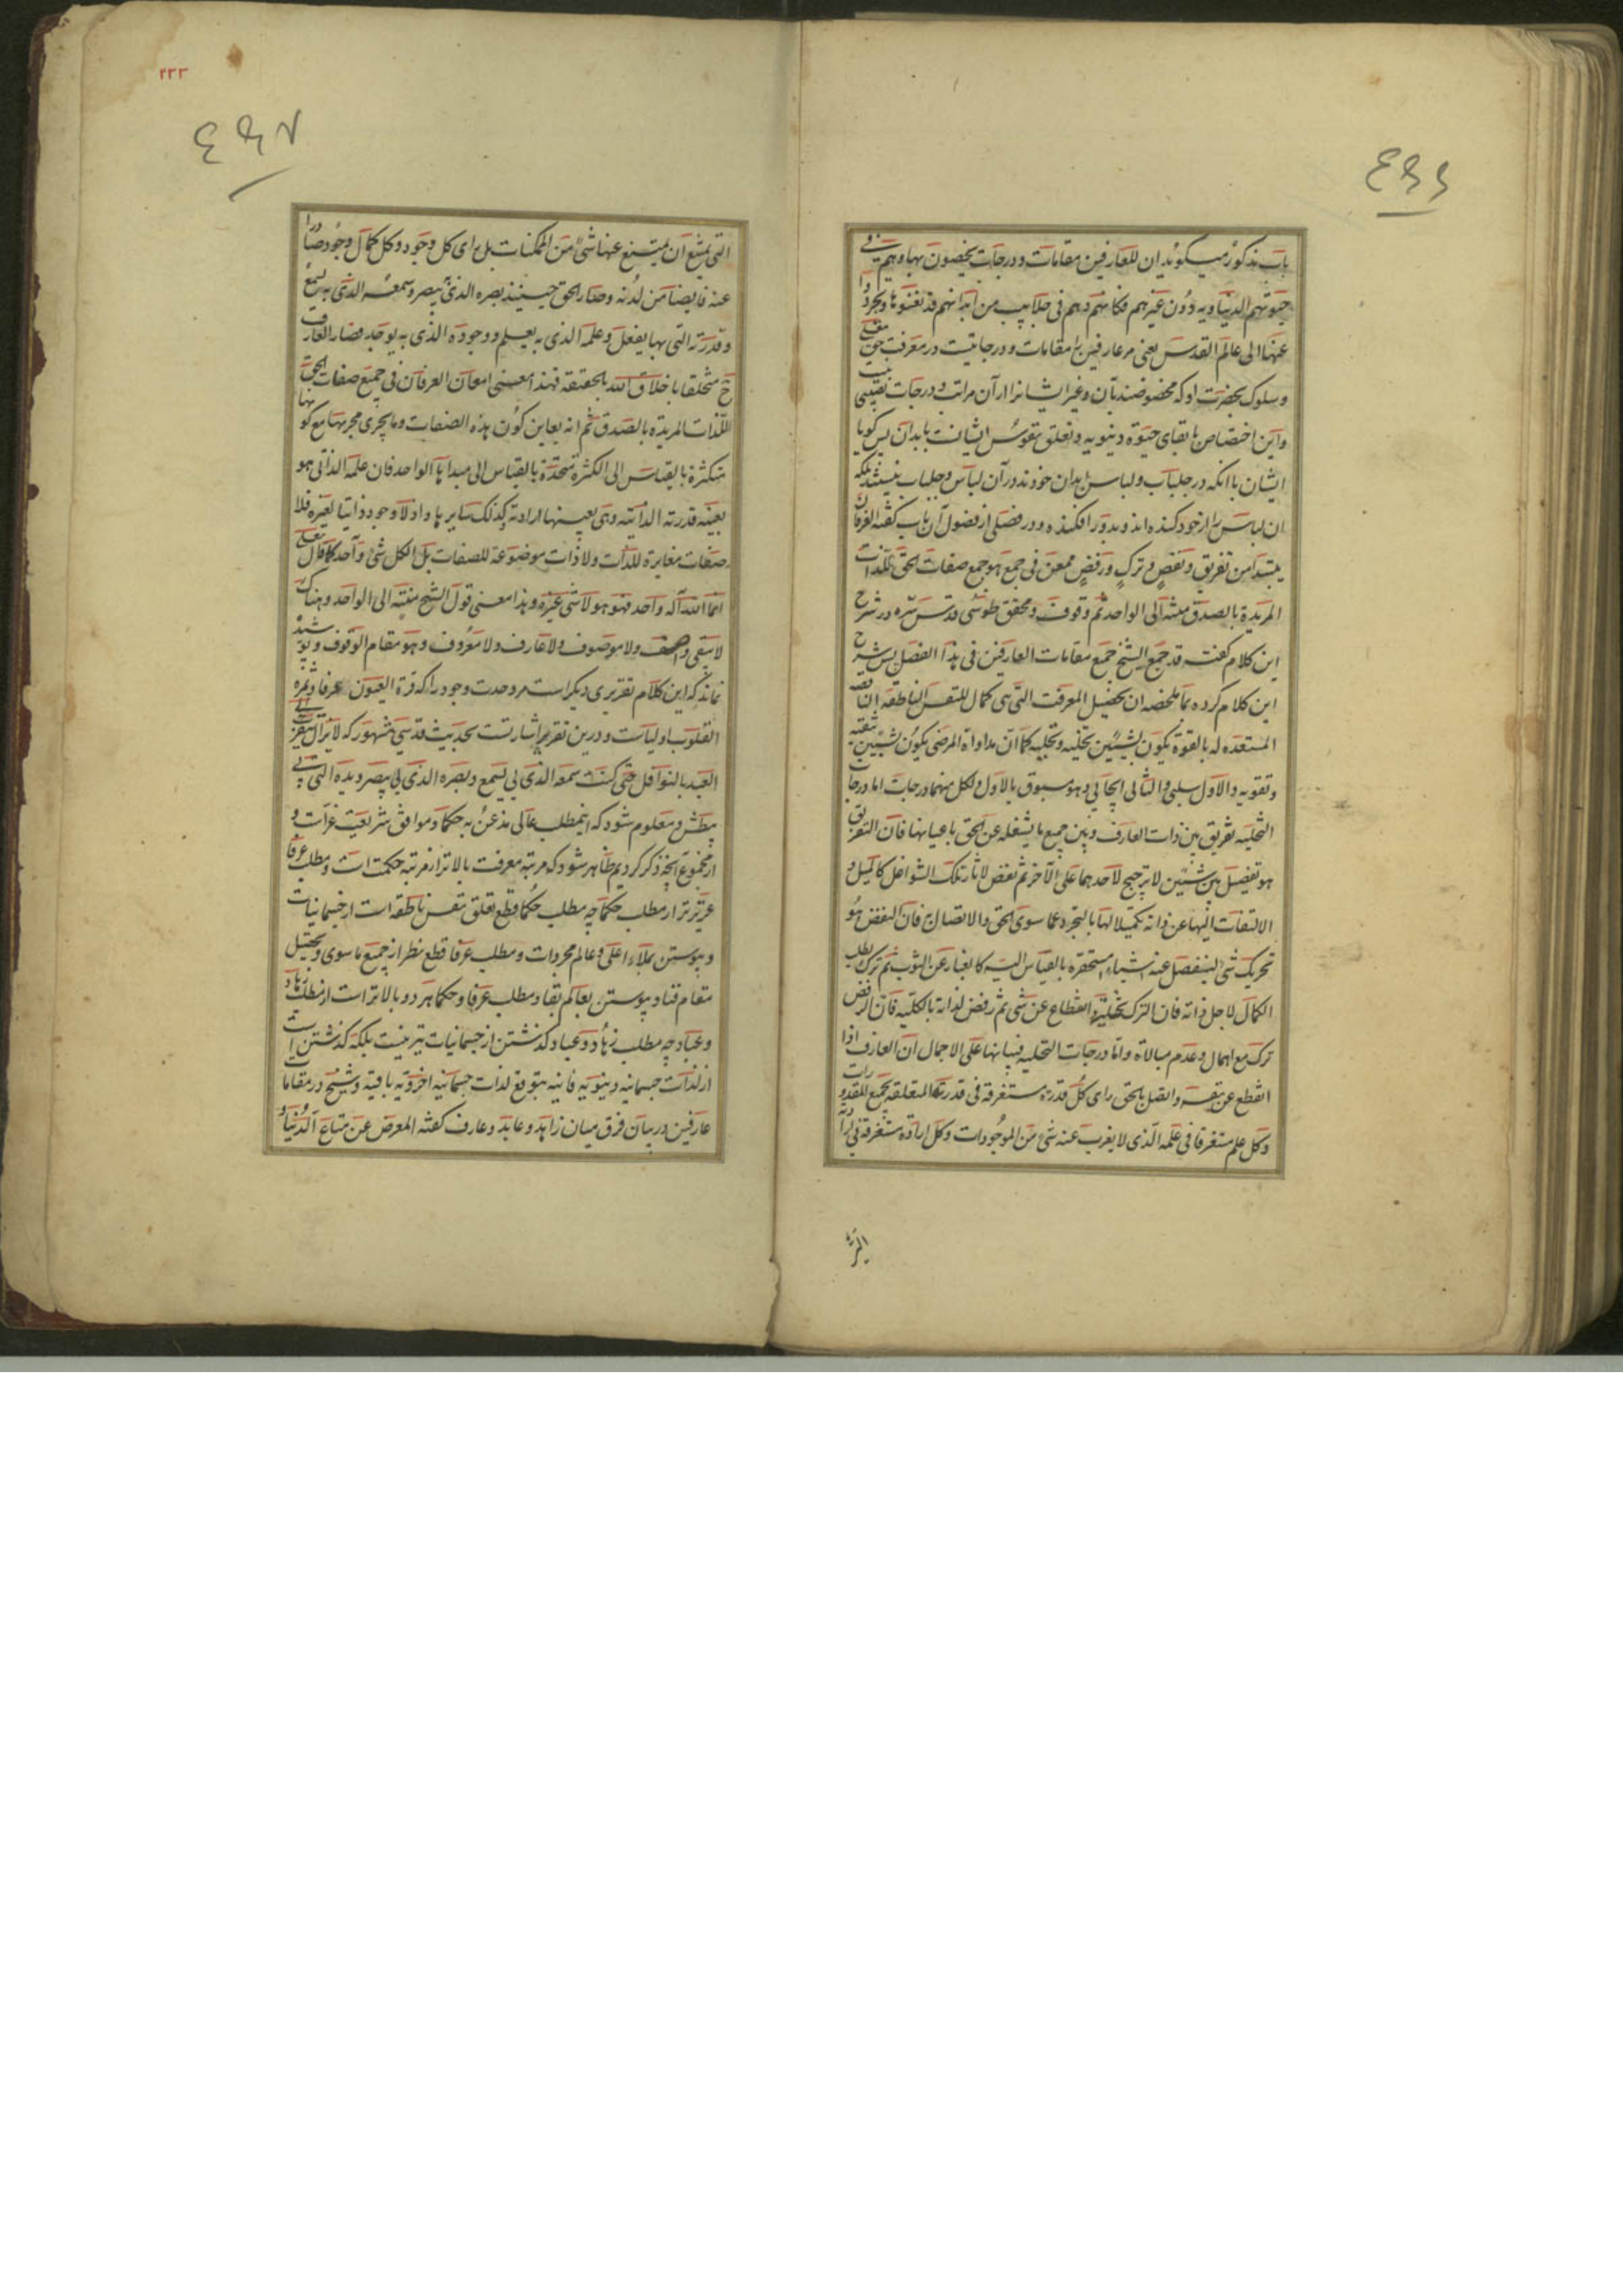 باب مذکور میکوید ان للعارفین مقامات و درجات یخصون بها و هم فی
حیوتهم الدنیاویه دون غیرهم فکانهم و هم فی جلابیب من ابدانهم قد نفضوها و تجردوا
عنها الی عالم القدس یعنی مر عارفین را مقامات و درجاتیست در معرفت حق تعالی
و سلوک بحضرت او که مخصوصند بآن و غیر ایشانرا از آن مراتب و درجات نصیبی نیست
و این اختصاص با بقای حیوة دنیویه و تعلق نفوس ایشانست بابدان پس کویا
ایشان با آنکه در جلباب و لباس ابدان خودند در آن لباس و جلباب نیستند بلکه
ان لباس را از خود کنده اند و بدور افکنده و در فصلی از فصول آن باب کفته العرفان
یبتدأ من تفریق و نفض و ترک و رفض ممعن فی جمع هو جمع صفات الحق للذات
المریدة بالصدق منته الی الواحد ثم وقوف و محقق طوسی قدس سره در شرح
این کلام کفته قد جمع الشیخ جمیع مقامات العارفین فی هذا الفصل پس شرح
این کلام کرده بما ملخصه ان تحصیل المعرفت التی هی کمال للنفس الناطقة الناقصه
المستعده له بالقوة یکون بشیئین تخلیه و تحلیه کما ان مداواة المرضی یکون بشیئین تنقیه
و تقویه والاول سلبی والثانی ایجابی و هو مسبوق بالاول و لکل منهما درجات اما درجات
التخلیه تفریق بین ذات العارف و بین جمیع ما یشغله عن الحق باعیانها فان التفریق
هو تفصیل بین شیئین لا یرجح لاحدهما علی الآخر ثم نفض لاثار تلک الشواغل کالمیل و
الالتفات الیها عن ذاته تکمیلا لها بالتجرد عما سوی الحق والاتصال به فان النفض هو
تحریک شئ لینفصل عنه اشیاء مستحقره بالقیاس الیه کالغبار عن الثوب ثم ترک لطلب
الکمال لاجل ذاته فان الترک تخلیة و انقطاع عن شی ثم رفض لذاته بالکلیه فان الرفض
ترک مع اهمال و عدم مبالاة و اما درجات التحلیه فبیانها علی الاجمال ان العارف اذا
انقطع عن نفسه و اتصل بالحق رای کل قدرة مستغرقة فی قدرته المتعلقه بجمیع المقدورات
و کل علم مستغرقا فی علمه الذی لا یعزب عنه شئ من الموجودات و کل ارادة مستغرقة فی ارادته
٢٣٣
التی یمتنع ان یمتنع عنها شئ من الممکنات بل رای کل وجود و کل کمال وجود صادرا
عنه فایضا من لدنه و صار الحق حینئذ بصره الذی یبصر و سمعه الذی به یسمع
و قدرته التی بها یفعل و علمه الذی به یعلم و وجوده الذی به یوجد فصار العارف
ح متخلقا باخلاق الله بالحقیقة فهذا معنی امعان العرفان فی جمیع صفات الحق
للذات المریده بالصدق ثم انه یعاین کون هذه الصفات و ما یجری مجریها مع کونها
متکثرة بالقیاس الی الکثرة متحدة بالقیاس الی مبدأها الواحد فان علمه الذاتی هو
بعینه قدرته الذاتیه وهی بعینها ارادته کذلک سایرها و اذ لا وجود ذاتیا لغیره فلا
صفات مغایرة للذات ولا ذات موضوعة للصفات بل الکل شئ واحد کما قال تعالی
انما الله آله واحد فهو هو لا شی غیره و هذا معنی قول الشیخ منتیه الی الواحد و هناک
لا یبقی واصف ولا موصوف ولا عارف ولا معروف و هو مقام الوقوف و پوشیده
نماند که این کلام تقریری دیکراست مر وحدت وجود را که قرة العیون عرفا و ثمره
القلوب اولیاست و درین تقریر اشارتست بحدیث قدسی مشهور که لا یزال یتقرب الی
العبد بالنوافل حتی کنت سمعه الذی بی یسمع و بصره الذی بی یبصر و یده التی بی
یبطش و معلوم شود که اینمطلب عالی مذعن به حکما و موافق شریعت غراست و
از مجموع آنچه ذکر کردیم ظاهر شود که مرتبه معرفت بالاتر از مرتبه حکمت است و مطلب عرفا
عزیزتر از مطلب حکما چه مطلب حکما قطع تعلق نفس ناطقه است از جسمانیات
و پیوستن بملاء اعلی و عالم مجردات و مطلب عرفا قطع نظر از جمیع ما سوی و تحصیل
مقام فنا و پیوستن بعالم بقا و مطلب عرفا و حکما هر دو بالاتر است از مطلب زهاد
و عباد چه مطلب زهاد و عباد کذشتن از جسمانیات نیز نیست بلکه کذشتن است
از لذات جسمانیه دنیویه فانیه بتوقع لذات جسمانیه اخرویه باقیه و شیخ در مقامات
عارفین در بیان فرق میان زاهد و عابد و عارف کفته المعرض عن متاع الدنیا و